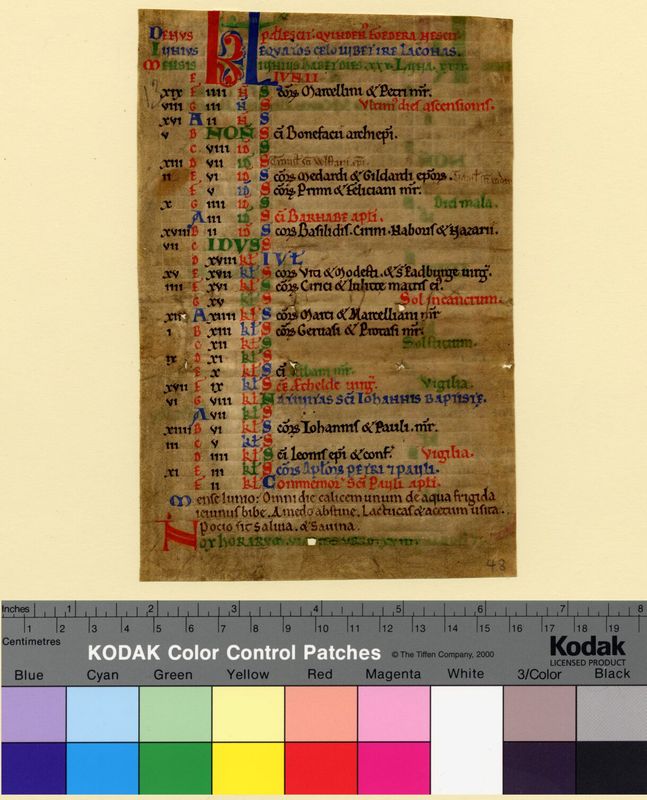 DENVS KL PALESCIT. QVINDEN FOEDERA NESCIT
IVNIVS EQVATOS CELO VIDET IRE LACONAS.
MENSIS IVNIVS HABET DIES XXX. LVNA XXIX
E IVNII
XIX F IIII N S cōȝ Marcellini & Petri mr̄.
VIII G III N S Vltim' dies ascensionis.
XVI A II N S
V B NON S c̄i Bonefacii archiep̄i.
C VIII ID S
XIII D VII ID S
II E VI ID S cōȝ Medardi & Gildardi
F V ID S cōȝ Primi & Feliciani mr̄.
X G IIII ID S Dies mala.
A III ID S c̄i BARNABE apt̄i.
XVIII B II ID S cōȝ Basilidis. Cirini. Naboris & Nazarii.
VII C IDVS S
D XVIII kł IVŁ
XV E XVII kł S cōȝ Viti & Modesti. & S Eadburge uirḡ.
IIII F XVI kł S cōȝ Cirici & Iulitte matris ei'.
G XV kł S Sol in cancrum.
XII A XIIII kł S cōȝ Marci & Marcelliani mr̄
I B XIII kł S cōȝ Geruasi & Protasi mr̄.
C XII kł S Solsticium.
IX D XI kł S
E X kł S c̄i Albani mr̄.
XVII F IX kł S c̄e Æþelde uirḡ. Vigilia.
VI G VIII kł NATIVITAS SC̄I IOHANNIS BAPTISTE.
A VII kł S
XIIII B VI kł S cōȝ Iohannis & Pauli. mr̄.
III C V kł S
D IIII kł S c̄i Leonis ep̄i & conf. Vigilia.
XI E III kł S cōȝ APLORȝ PETRI 7 PAVLI.
F II kł Commemor' Sc̄i Pauli apt̄i.
Mense Iunio: Omni die calicem unum de aqua frigida
ieiunus bibe. A medo abstine. Lactucas & acetum usita.
Pocio sit Saluia. & Sauina.
NOX HORARVM
43
Inches 1 2 3 4 5 6 7 8
Centimetres 1 2 3 4 5 6 7 8 9 10 11 12 13 14 15 16 17 18 19
KODAK Color Control Patches © The Tiffen Company, 2000 Kodak
LICENSED PRODUCT
Blue Cyan Green Yellow Red Magenta White 3/Color Black